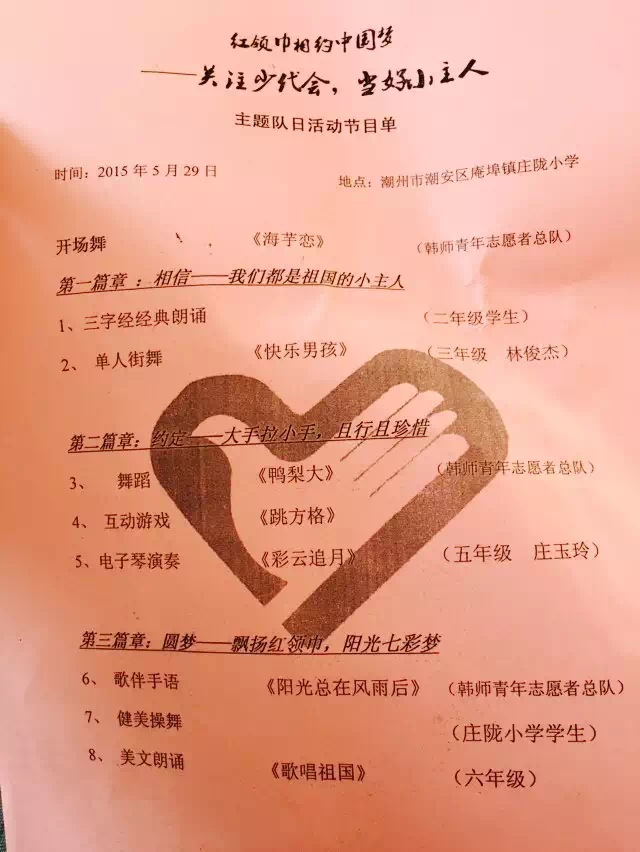 红领巾相约中国梦
——关注少代会，当好小主人
主题队日活动节目单
时间：2015年5月29日 地点：潮州市潮安区庵埠镇庄陇小学
开场舞 《海芋恋》 （韩师青年志愿者总队）
第一篇章：相信——我们都是祖国的小主人
1、三字经经典朗诵 （二年级学生）
2、 单人街舞 《快乐男孩》 （三年级 林俊杰）
第二篇章：约定——大手拉小手，且行且珍惜
3、 舞蹈 《鸭梨大》 （韩师青年志愿者总队）
4、 互动游戏 《跳方格》
5、电子琴演奏 《彩云追月》 （五年级 庄玉玲）
第三篇章：圆梦——飘扬红领巾，阳光七彩梦
6、 歌伴手语 《阳光总在风雨后》 （韩师青年志愿者总队）
7、 健美操舞 （庄陇小学学生）
8、 美文朗诵 《歌唱祖国》 （六年级）